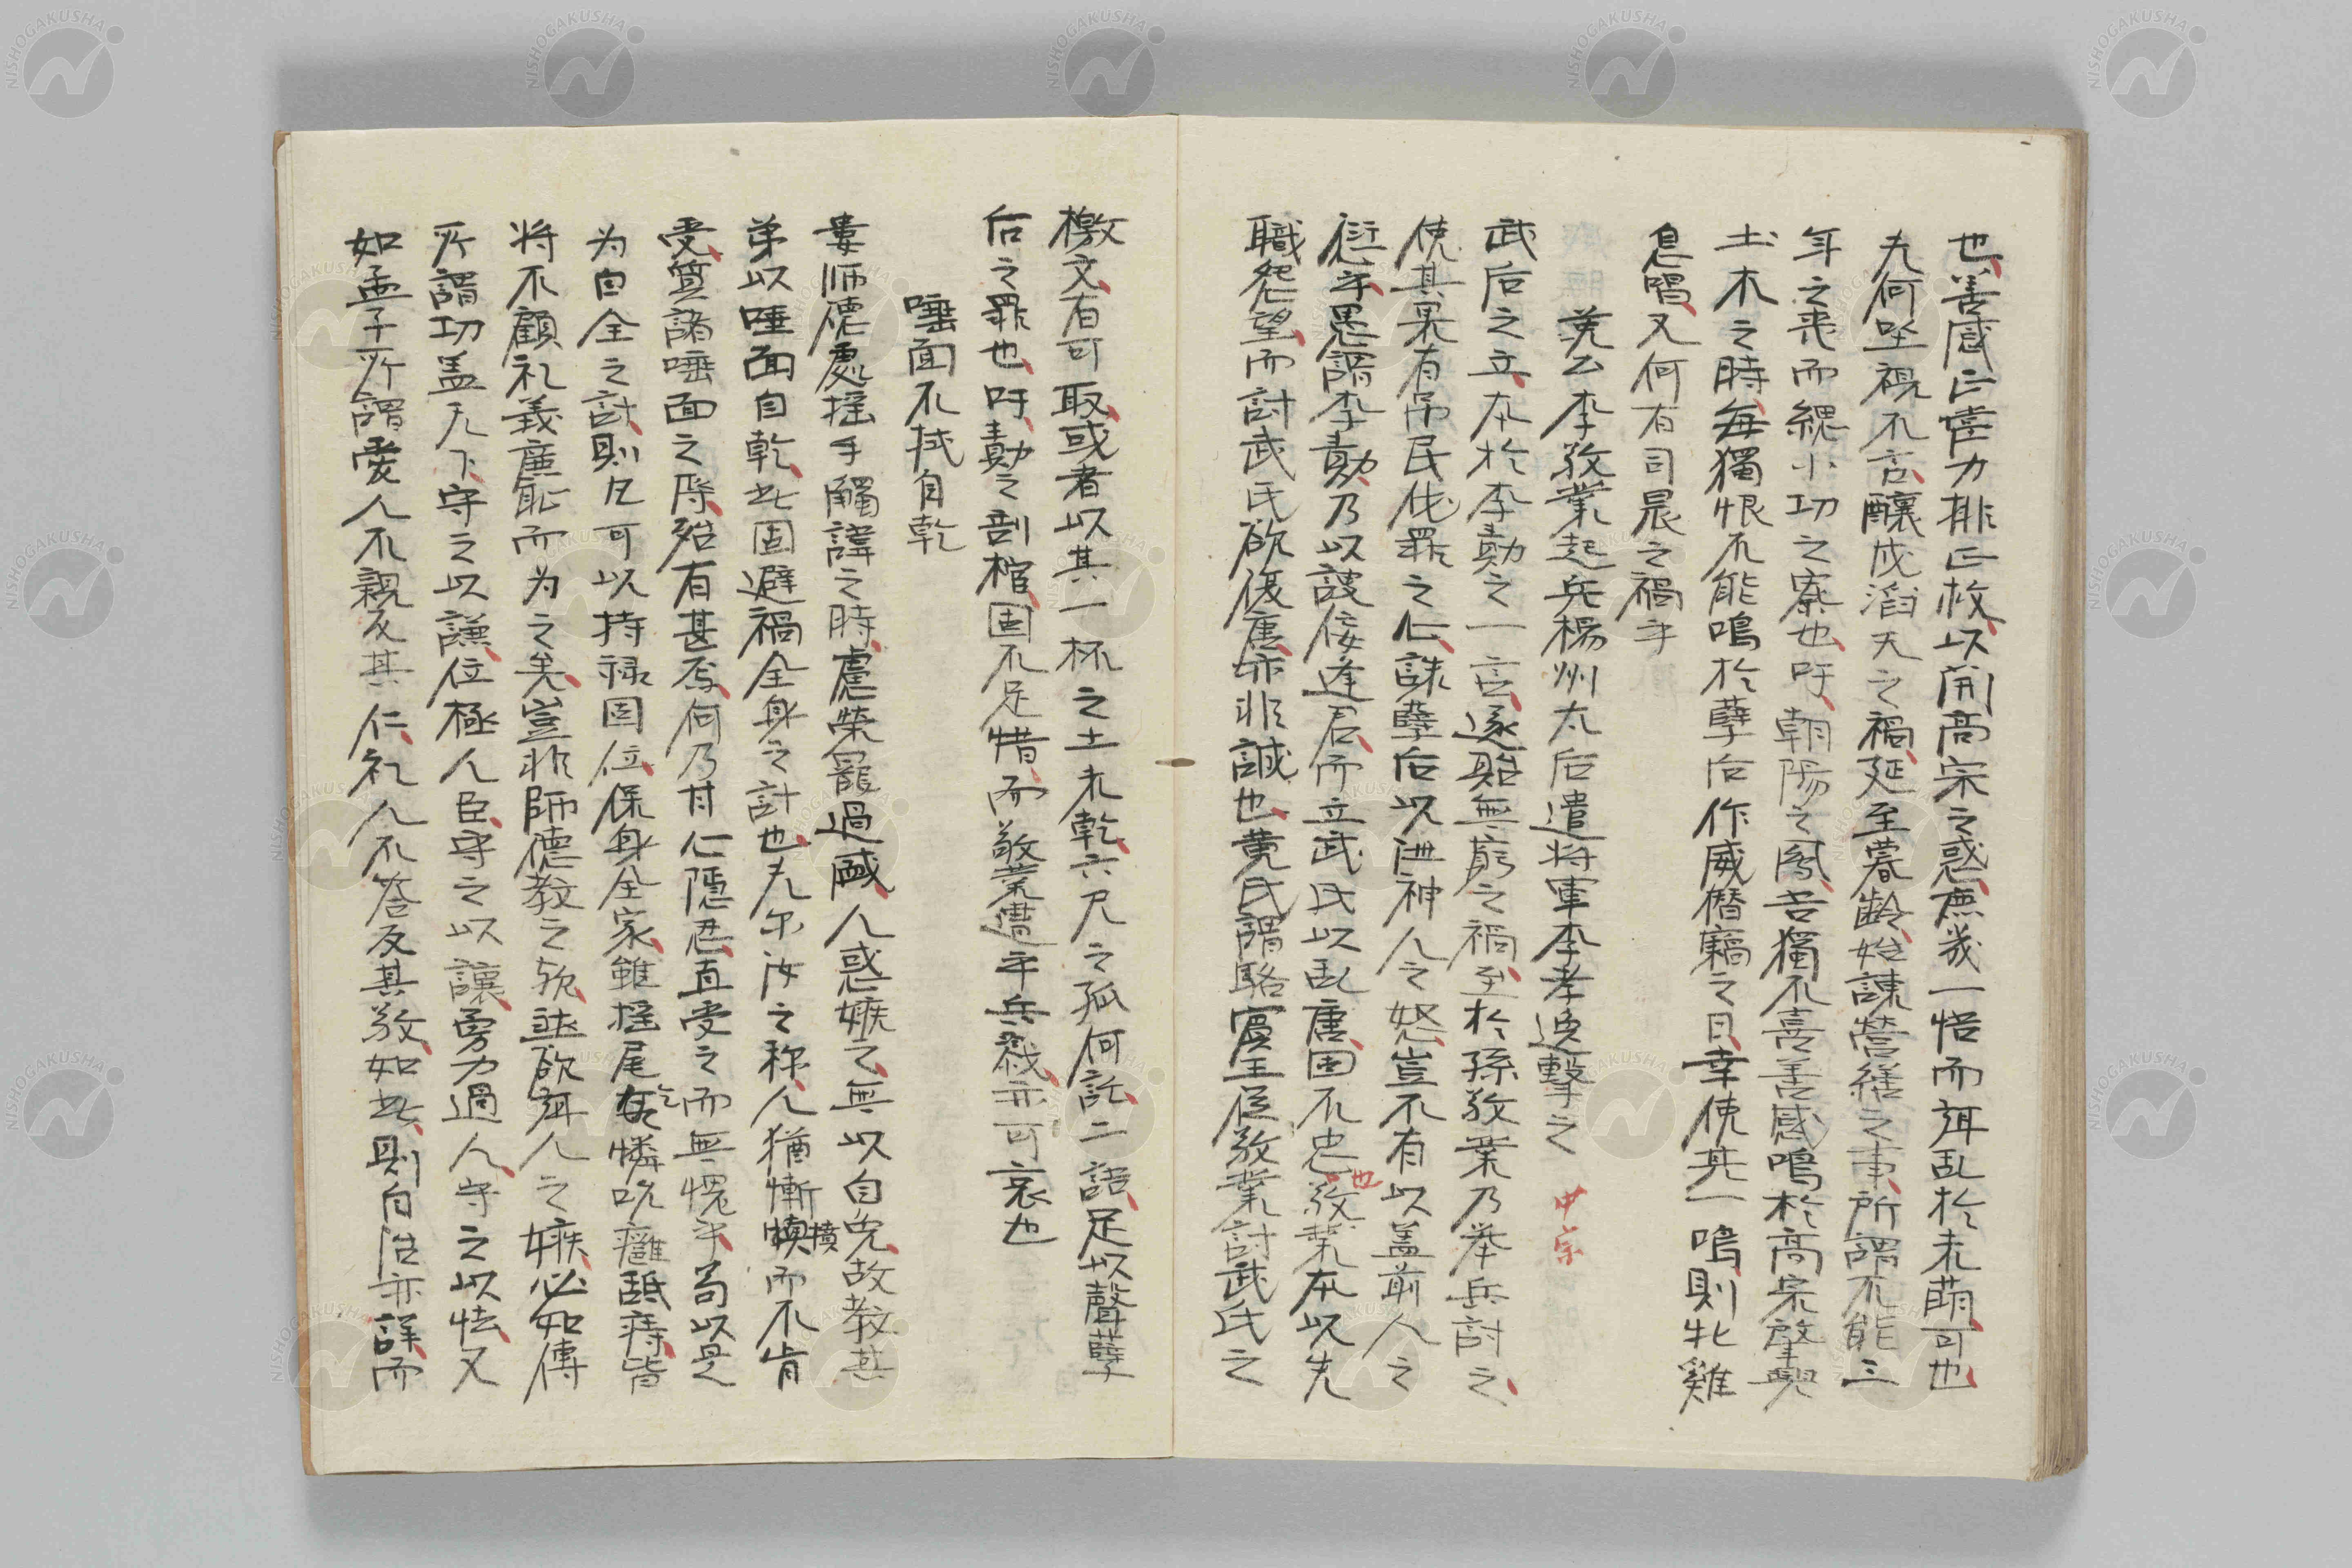 也善感正當力排正救以開高宗之惑庶幾一悟而弭乱於未萌可也
夫何坐視不言釀成滔天之禍延至暮齡始諫營繕之事所謂不能三
年之喪而緦小功之察也吁朝陽之鳳吾獨不喜善感鳴於高宗啓釁
土木之時每獨恨不能鳴於孽后作威僭竊之日幸使其一鳴則牝雞
息唱又何有司晨之禍乎
英公李敬業起兵楊州太后遣将軍李孝逸擊之 中宗
武后之立本於李勣之一言遂貽無窮之禍至於孫敬業乃举兵討之
使其果有吊民伐罪之仁誅孽后以泄神人之怒豈不有以盖前人之
愆乎愚謂李勣乃以諛佞逢君而立武氏以乱唐国不忠也敬業本以失
職怨望而討武氏欲復唐亦非誠也黄氏謂駱賓王從敬業討武氏之
檄文有可取或者以其一杯之土未乾六尺之孤何託二語足以聲孽
后之罪也吁勣之剖棺固不足惜而敬業遭乎兵戮亦可哀也
唾面不拭自乾
婁师德處搖手觸諱之時慮榮寵過盛人惑嫉之無以自免故教其
弟以唾面自乾此固避禍全身之計也夫尔汝之称人猶慚憤而不肯
受笪諸唾面之辱殆有甚焉何乃甘仁隱忍直受之而無愧乎苟以是
为自全之計則凡可以持禄固位保身全家雖搖尾乞憐吮癰舐痔皆
将不顧礼義廉耻而为之矣豈非師德教之欤誠欲弭人之嫉必如傳
所謂功盖天下守之以謙位極人臣守之以讓勇力過人守之以怯又
如孟子所謂愛人不親反其仁礼人不答反其敬如此則自治亦詳而